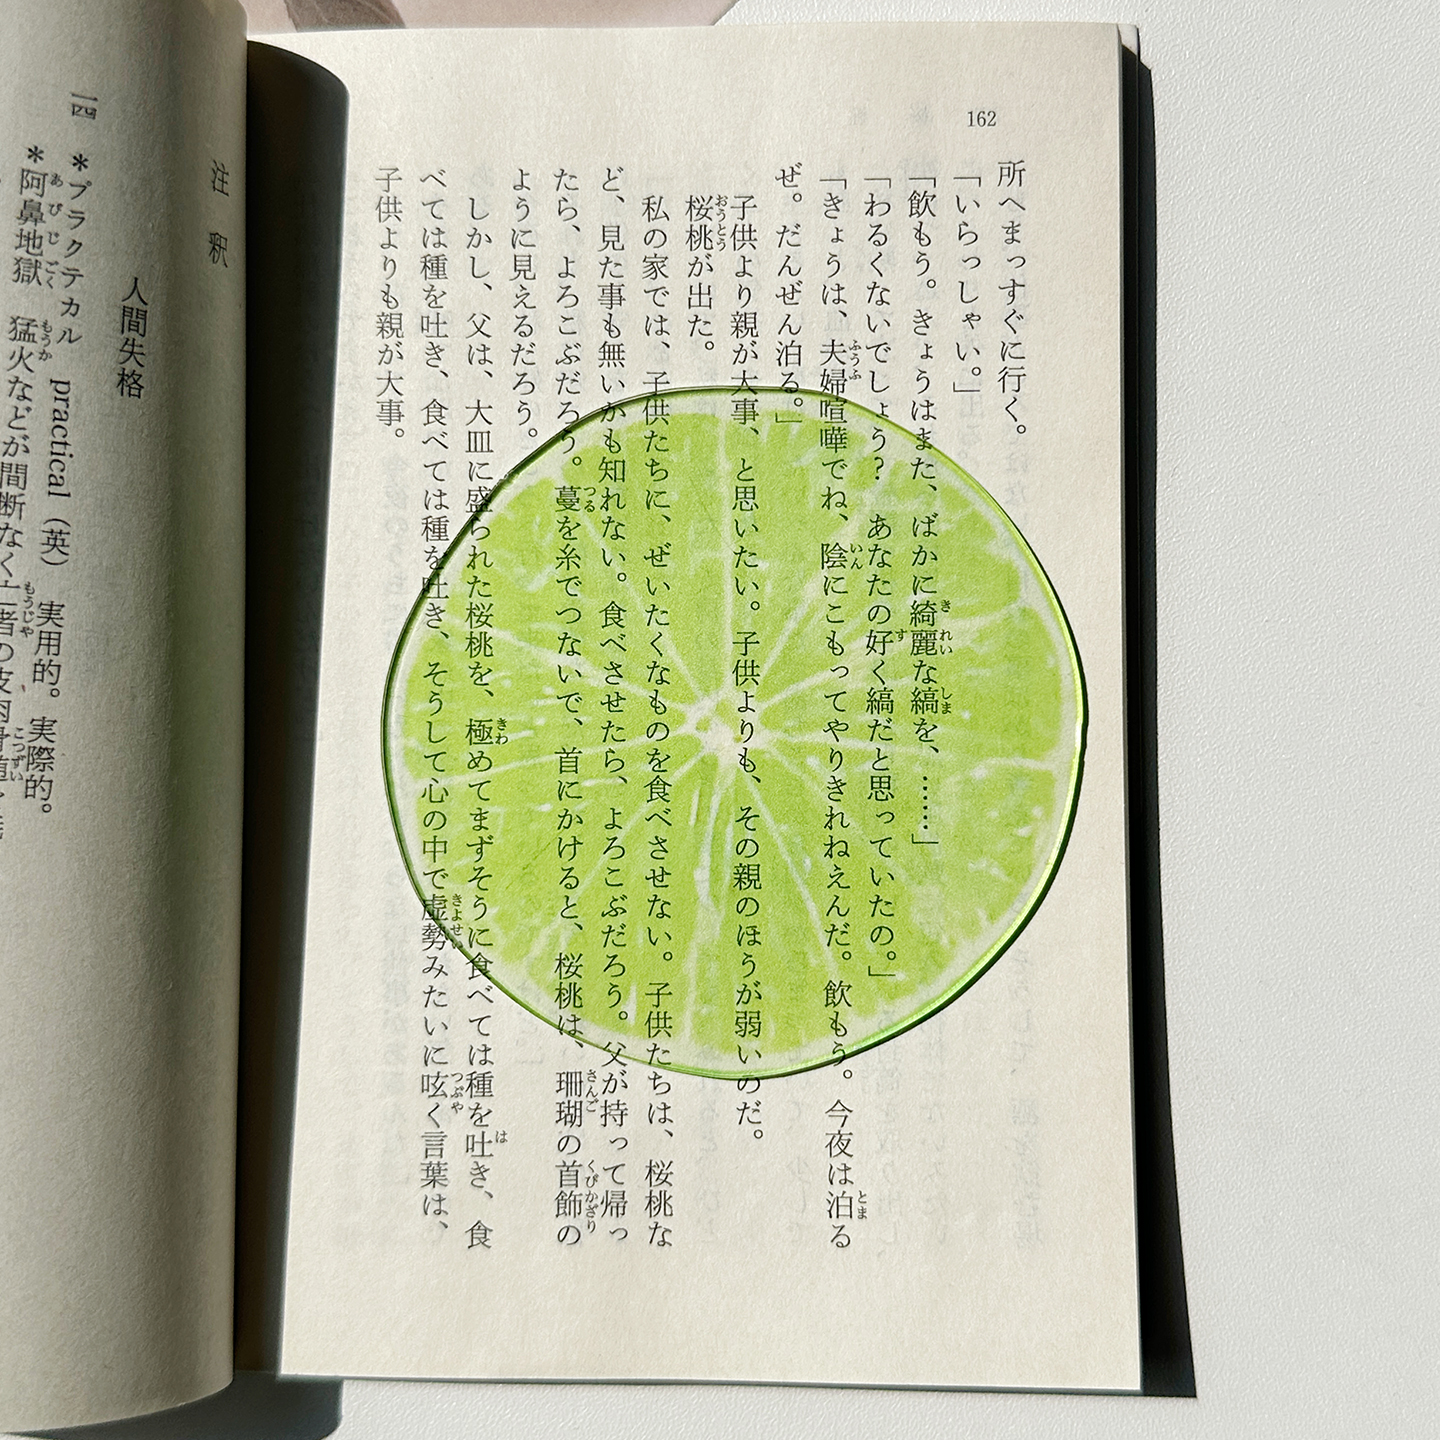 162
所へまっすぐに行く。
「いらっしゃい。」
「飲もう。きょうはまた、ばかに綺麗な縞を、……」
「わるくないでしょう? あなたの好く縞だと思っていたの。」
「きょうは、夫婦喧嘩でね、陰にこもってやりきれねえんだ。飲もう。今夜は泊る
ぜ。だんぜん泊る。」
子供より親が大事、と思いたい。子供よりも、その親のほうが弱いのだ。
桜桃が出た。
私の家では、子供たちに、ぜいたくなものを食べさせない。子供たちは、桜桃な
ど、見た事も無いかも知れない。食べさせたら、よろこぶだろう。父が持って帰っ
たら、よろこぶだろう。蔓を糸でつないで、首にかけると、桜桃は、珊瑚の首飾の
ように見えるだろう。
しかし、父は、大皿に盛られた桜桃を、極めてまずそうに食べては種を吐き、食
べては種を吐き、食べては種を吐き、そうして心の中で虚勢みたいに呟く言葉は、
子供よりも親が大事。
注釈
人間失格
一四 *プラクテカル practical(英) 実用的。実際的。
*阿鼻地獄 猛火などが間断なく亡者の皮肉骨随